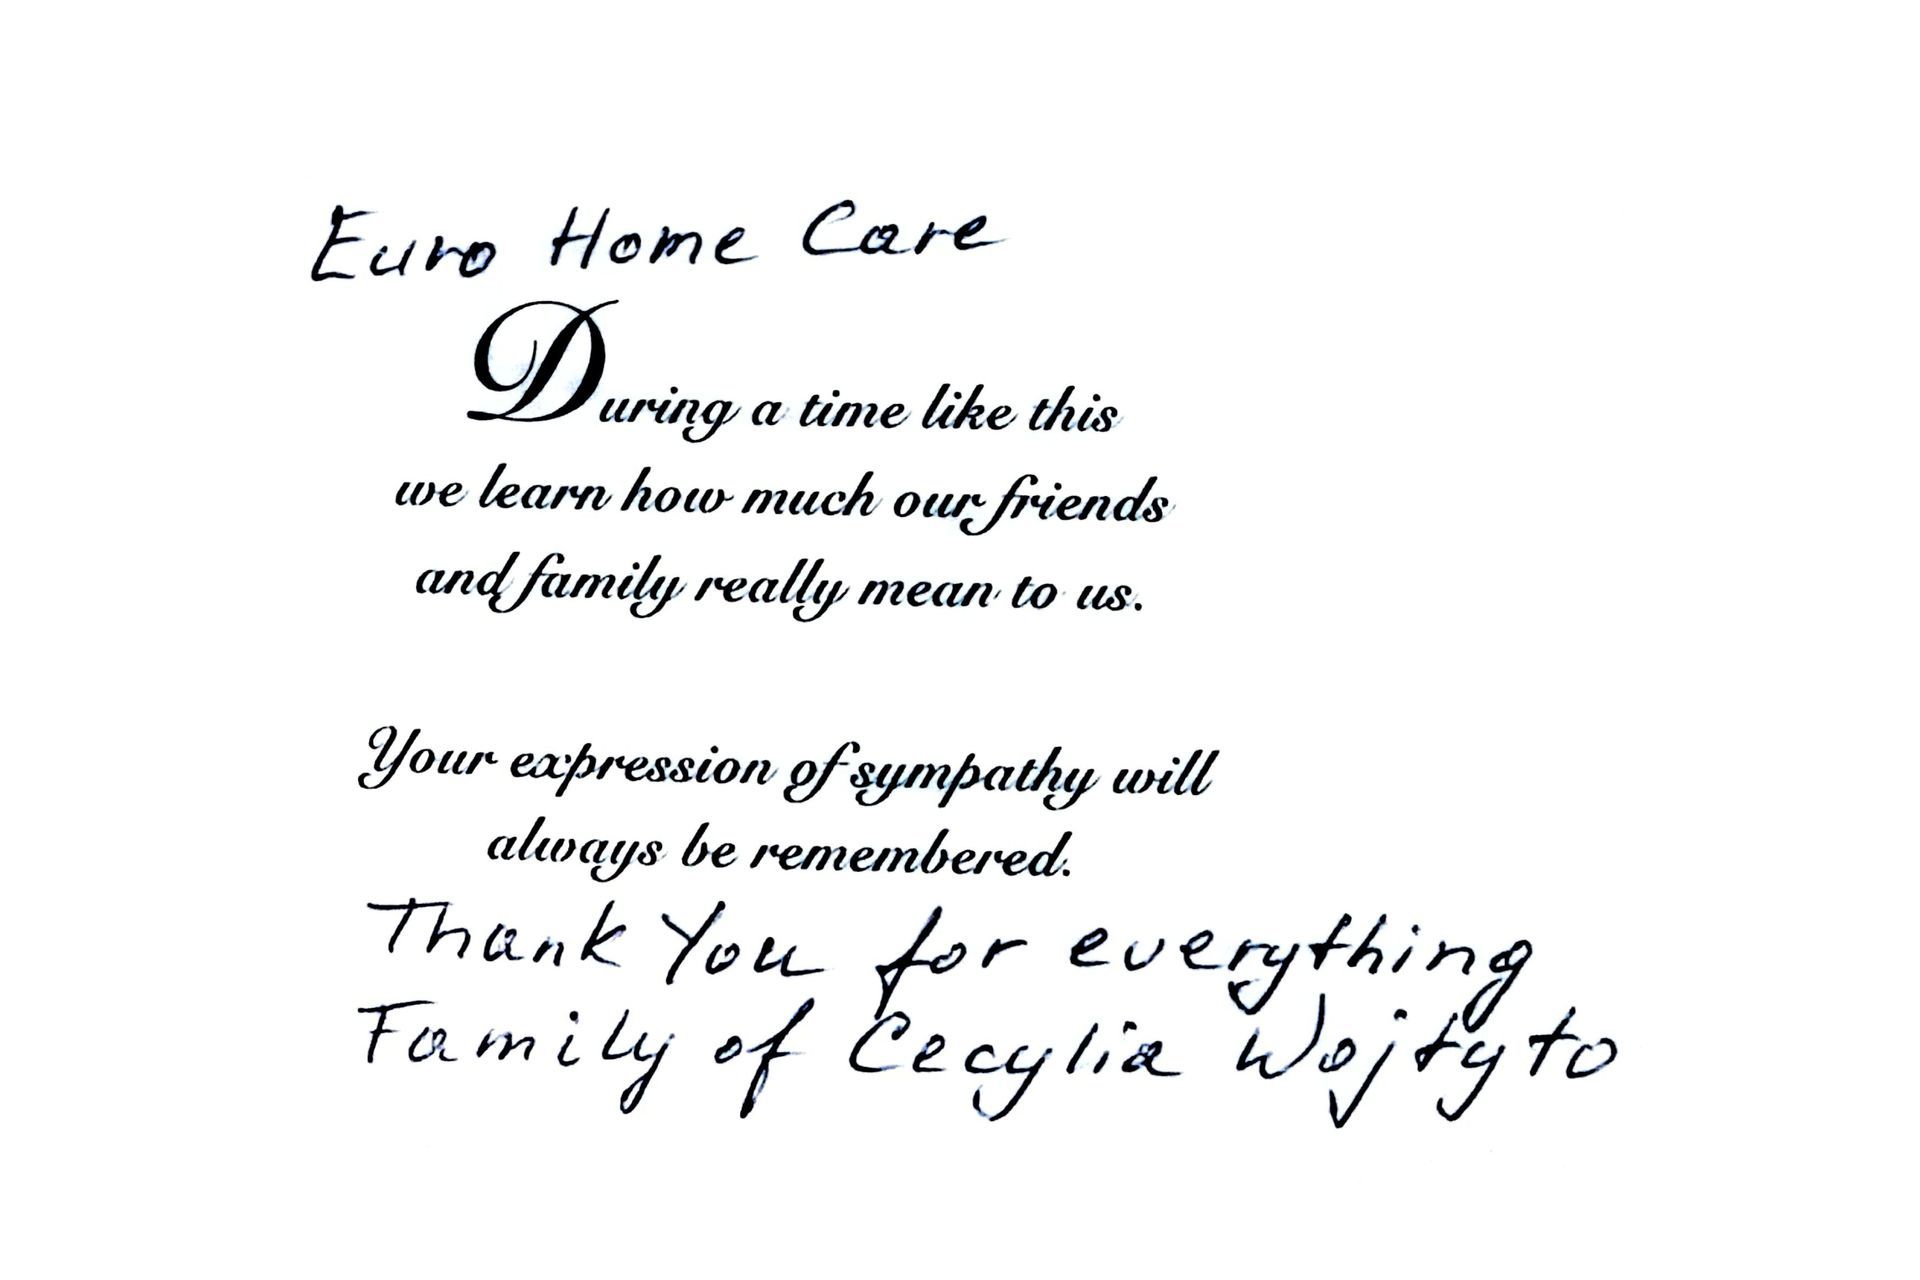 Euro Home Care
During a time like this
we learn how much our friends
and family really mean to us.
Your expression of sympathy will
always be remembered.
Thank You for everything
Family of Cecylia Wojtyto